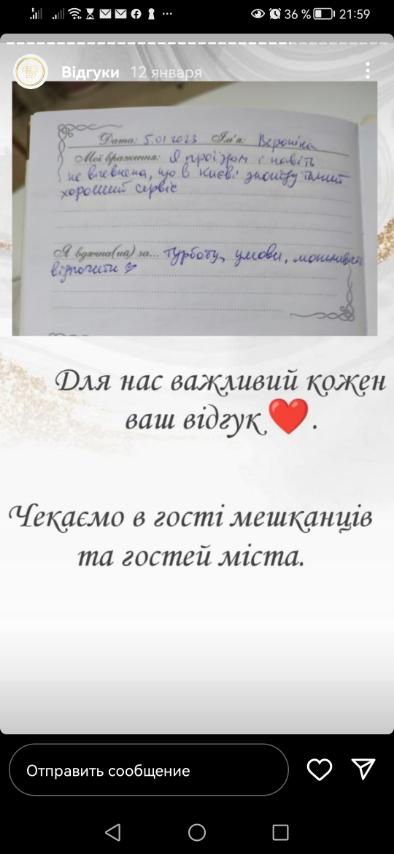 36 % 21:59
Відгуки 12 января
Дата: 5.01 2023 Ім'я: Вероніка
Мої враження: Я проїздом і навіть
не впевнена, що в Києві знайду такий
хороший сервіс
Я вдячна(ий) за... турботу, умови, можливість
відпочити
Для нас важливий кожен
ваш відгук ❤️.
Чекаємо в гості мешканців
та гостей міста.
Отправить сообщение